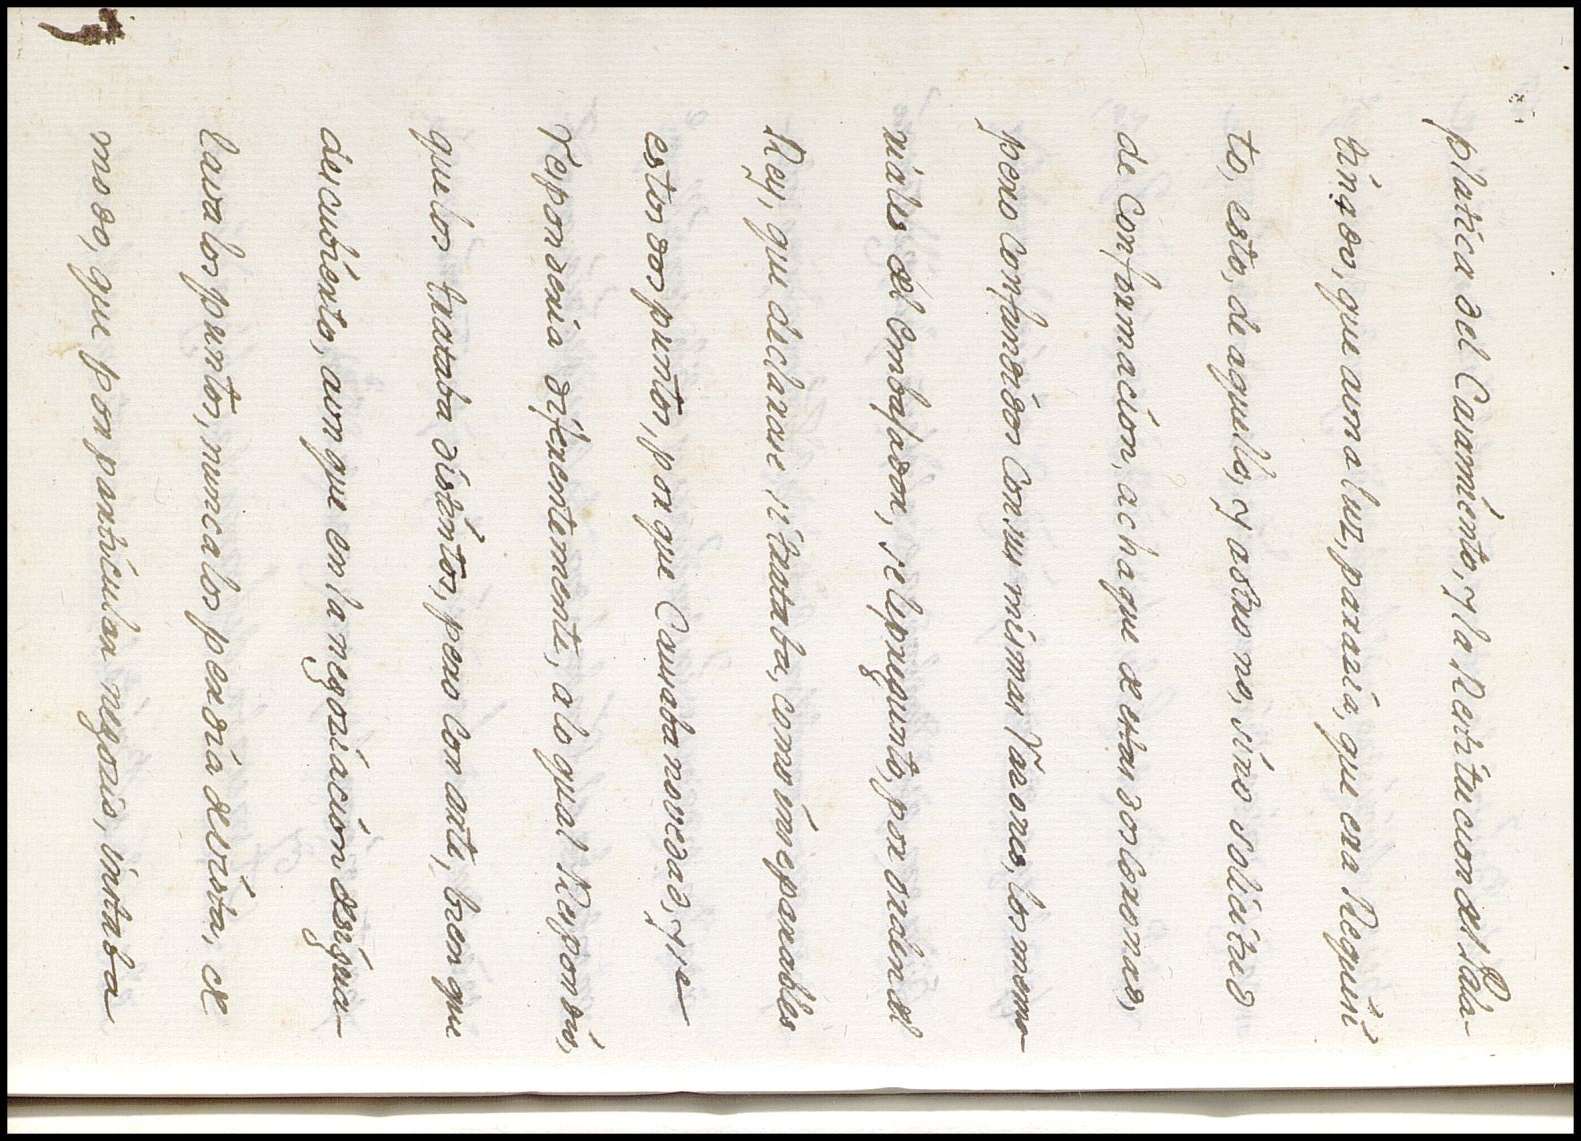 platica del Casamiento, y la Restitucion del Pala-
tinado, que aun a luz, pareceria, que era Requisi
to, esto, de aquello, y astuto no, sino solicitud
de Confirmacion, achaque de estas dos Coronas,
pero Confundidos Con sus mismas razones, los memo-
riales del Embaxador, se le pregunto, por orden del
Rey, que declarase, si trataba, como inseparables
estos dos puntos, por que Causaba novedad, y se
responderia diferentemente, a lo qual Respondio,
que los trataba distintos, pero Con arte, bien que
descubierto, aunque en la negoziacion desigua-
laba los puntos, nunca los perdia de vista, de
modo, que por particular negozio, instaba